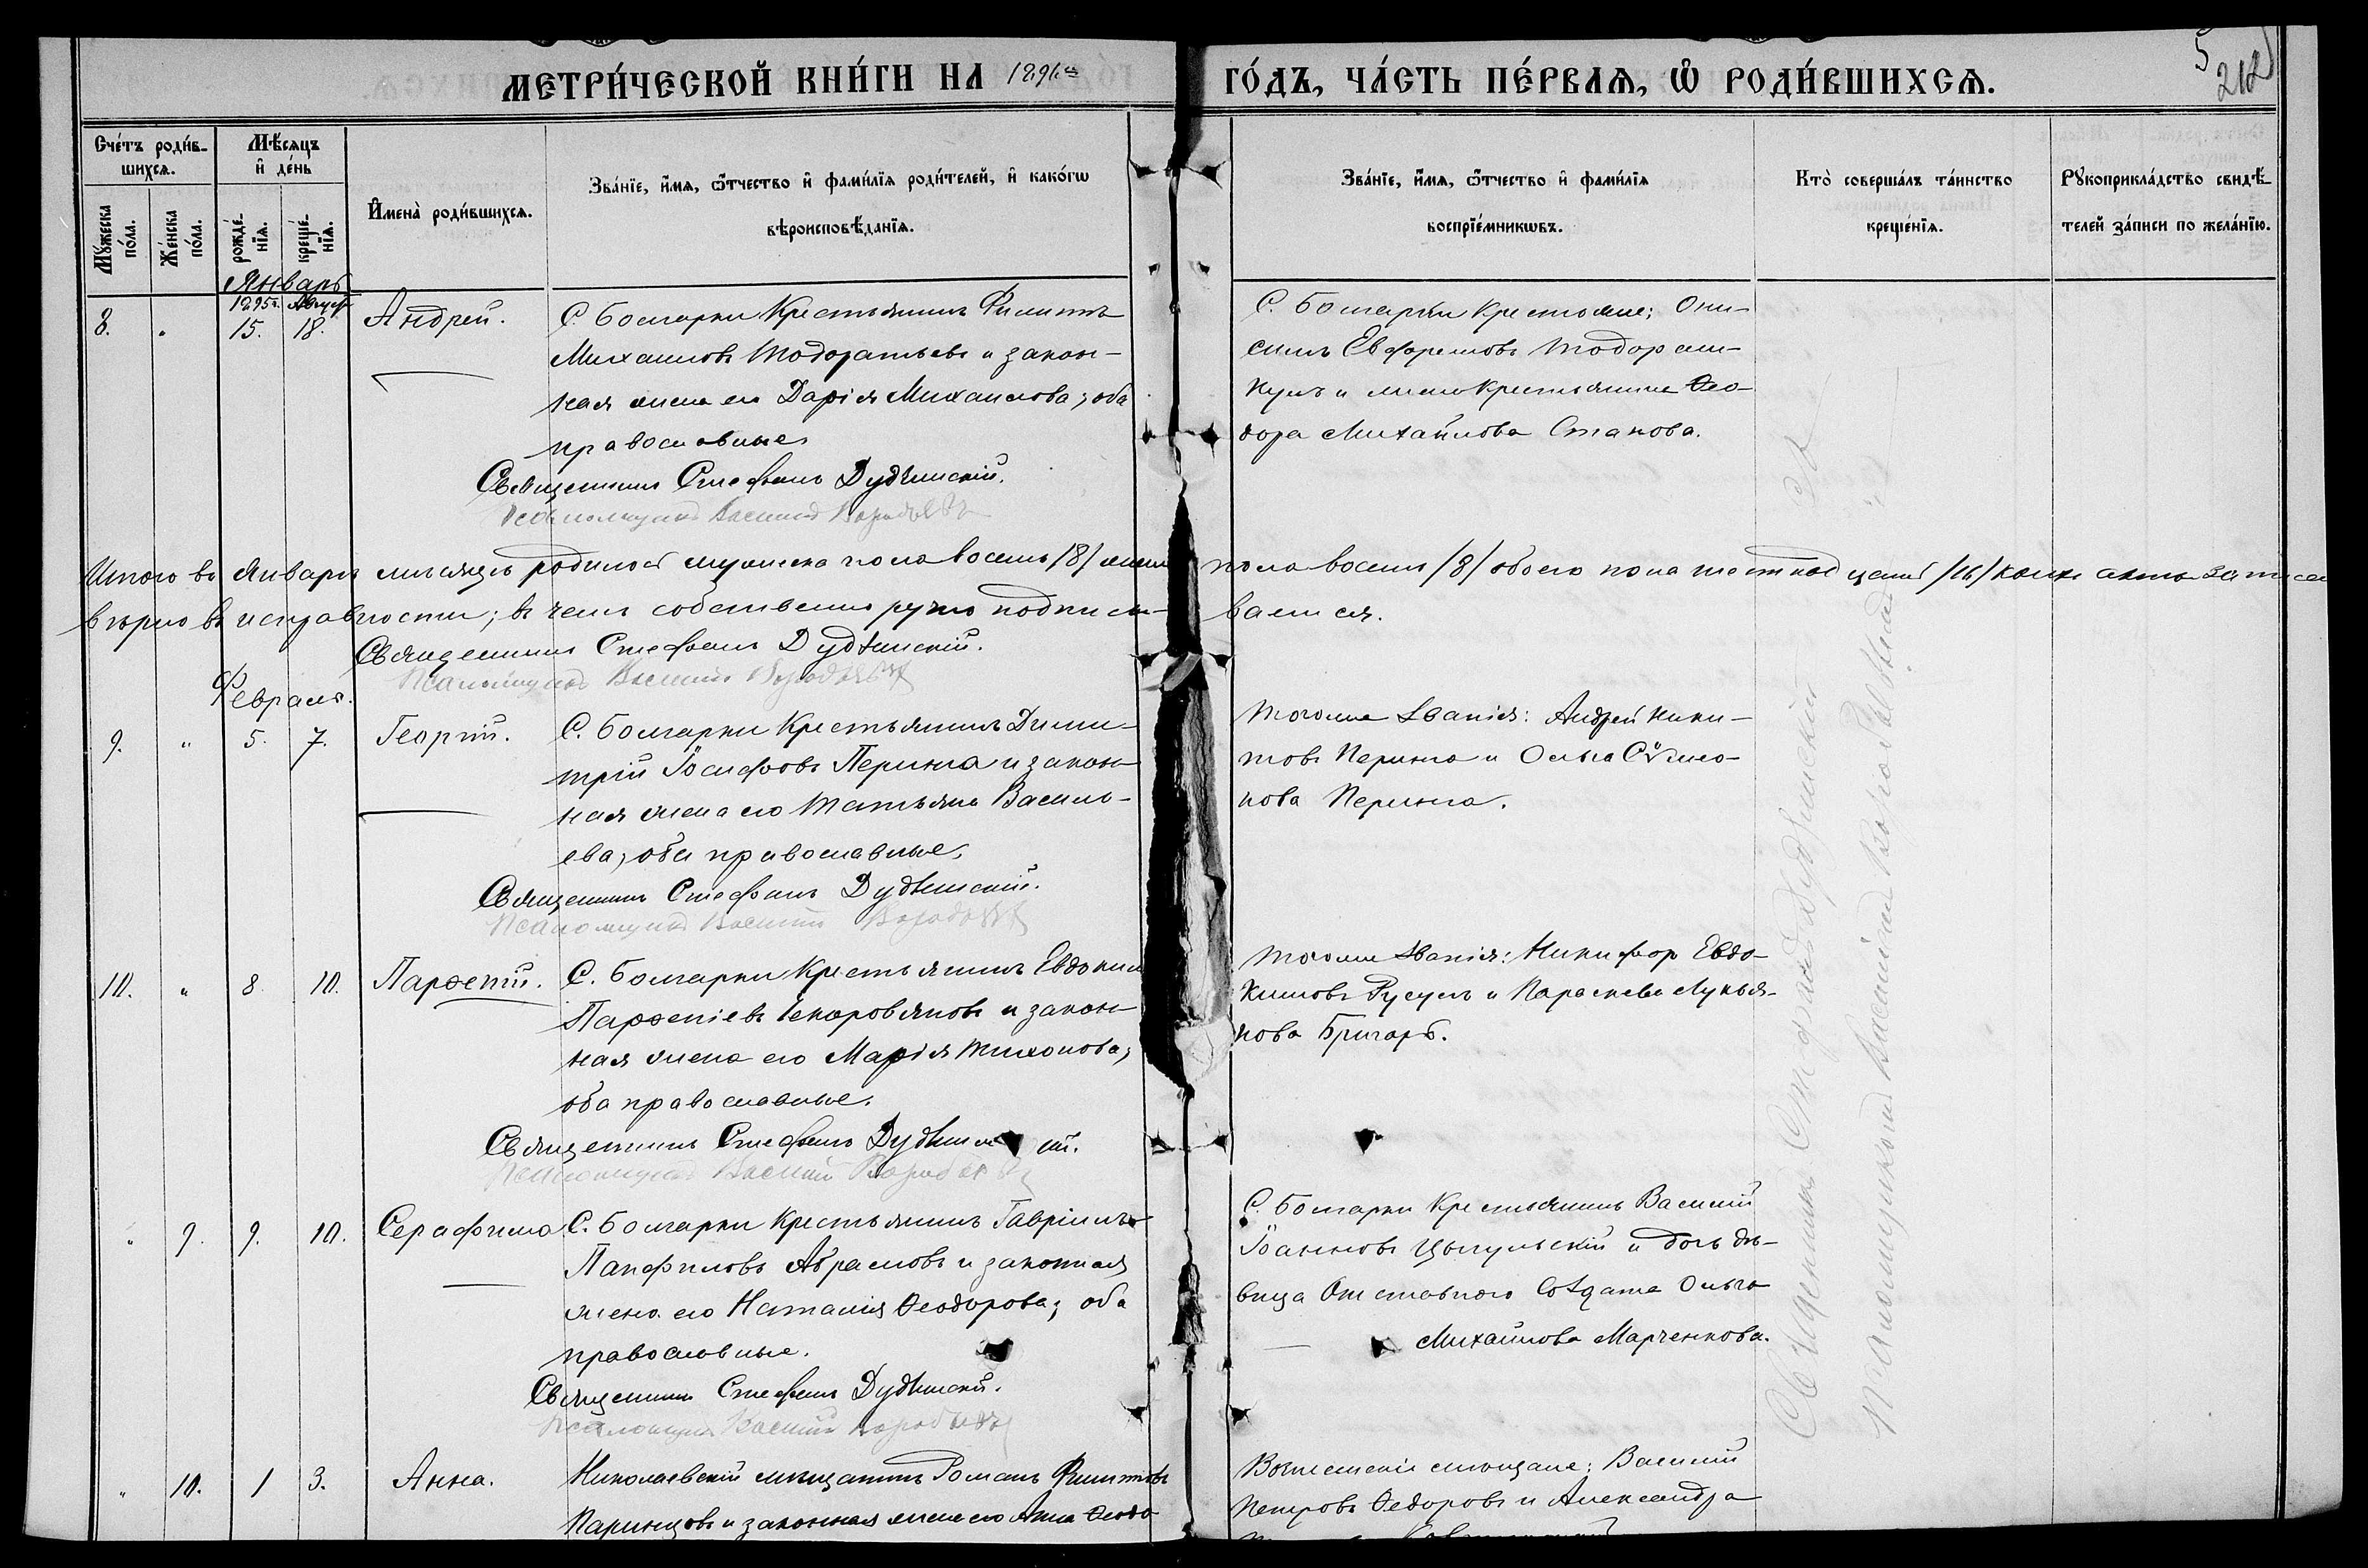 МЕТРИ́ЧЕСКОЙ КНИ́ГИ НА 1896й ГО́ДЪ, ЧА́СТЬ ПЕ́РВАЯ, Ѡ РОДИ́ВШИХСЯ.
5
212
Сче́тъ роди́в-
шихсѧ.
Мꙋ́жеска по́ла.
Же́нска по́ла.
Мѣ́сѧцъ
и де́нь
рожде́-
нїѧ.
креще́-
нїѧ.
Имена̀ роди́вшихсѧ.
Зва́нїе, и́мѧ, ѻ́тчество и фами́лїѧ роди́телей, и како́гѡ
вѣроисповѣ́данїѧ.
Зва́нїе, и́мѧ, ѻ́тчество и фами́лїѧ
воспрїе́мникѡвъ.
Кто̀ соверша́лъ та́инство
креще́нїѧ.
Рꙋкоприкла́дство свидѣ́-
телей за́писи по жела́нїю.
Январь
1895г. Август
8. „ 15. 18. Андрей.
С. Болгарки Крестьянинъ Филиппъ
Михаиловъ Тодоратьевъ и закон-
ная жена его Дарія Михаилова; оба
православные
Священникъ Стефанъ Дудѣинскій.
Псаломщикъ Василій
С. Болгарки Крестьяне: Они-
симъ Евфремовъ Тодорали-
Крестьянина Ѳео-
дора Михайлова Станова.
Итого въ Январѣ мѣсяцѣ родилось мужеска пола восемь /8/ женс. пола восемь /8/ обоего пола шестнадцать /16/
вѣрно въ исправности; въ чемъ собственно ручно подписы-
ваемся.
Священникъ Стефанъ Дудѣинскій.
Псаломщикъ Василій
Февраль.
9. „ 5. 7. Георгій.
С. Болгарки Крестьянинъ Дими-
трій Іосифовъ Перинга и закон-
ная жена его Татьяна Василь-
ева; оба православные.
Священникъ Стефанъ Дудѣинскій.
Псаломщикъ Василій
Того же званія: Андрей Ники-
товъ Перинга и Ольга Сѵмео-
нова Перинга.
10. „ 8 10. Парѳеній.
С. Болгарки Крестьянинъ Евдоким
Парѳеніевъ и закон-
ная жена его Марія Тихонова;
оба православные.
Священникъ Стефанъ Дудѣинскій.
Псаломщикъ Василій
Того же званія: Никифор Евдо-
кимовъ Русулъ и Параскева Лукья-
нова Бригарь.
„ 9. 9. 10. Серафима
С. Болгарки Крестьянинъ Гавріилъ
Панфиловъ Абрамовъ и законная
жена его Наталія Ѳеодорова; оба
православные.
Священникъ Стефанъ Дудѣинскій.
Псаломщикъ Василій
С. Болгарки Крестьянинъ Василій
Іоанновъ Цыгульскій и дочь дѣ-
вица Отставного Солдата Ольга
Михайлова Марченкова.
„ 10. 1 3. Анна.
Николаевскій мѣщанинъ Романъ Филиповъ
и законная жена его Анна Ѳеодо
мѣщане: Василій
Петровъ Ѳедоровъ и Александра
Священникъ Стефанъ Дудѣинскій
Псаломщикъ Василій